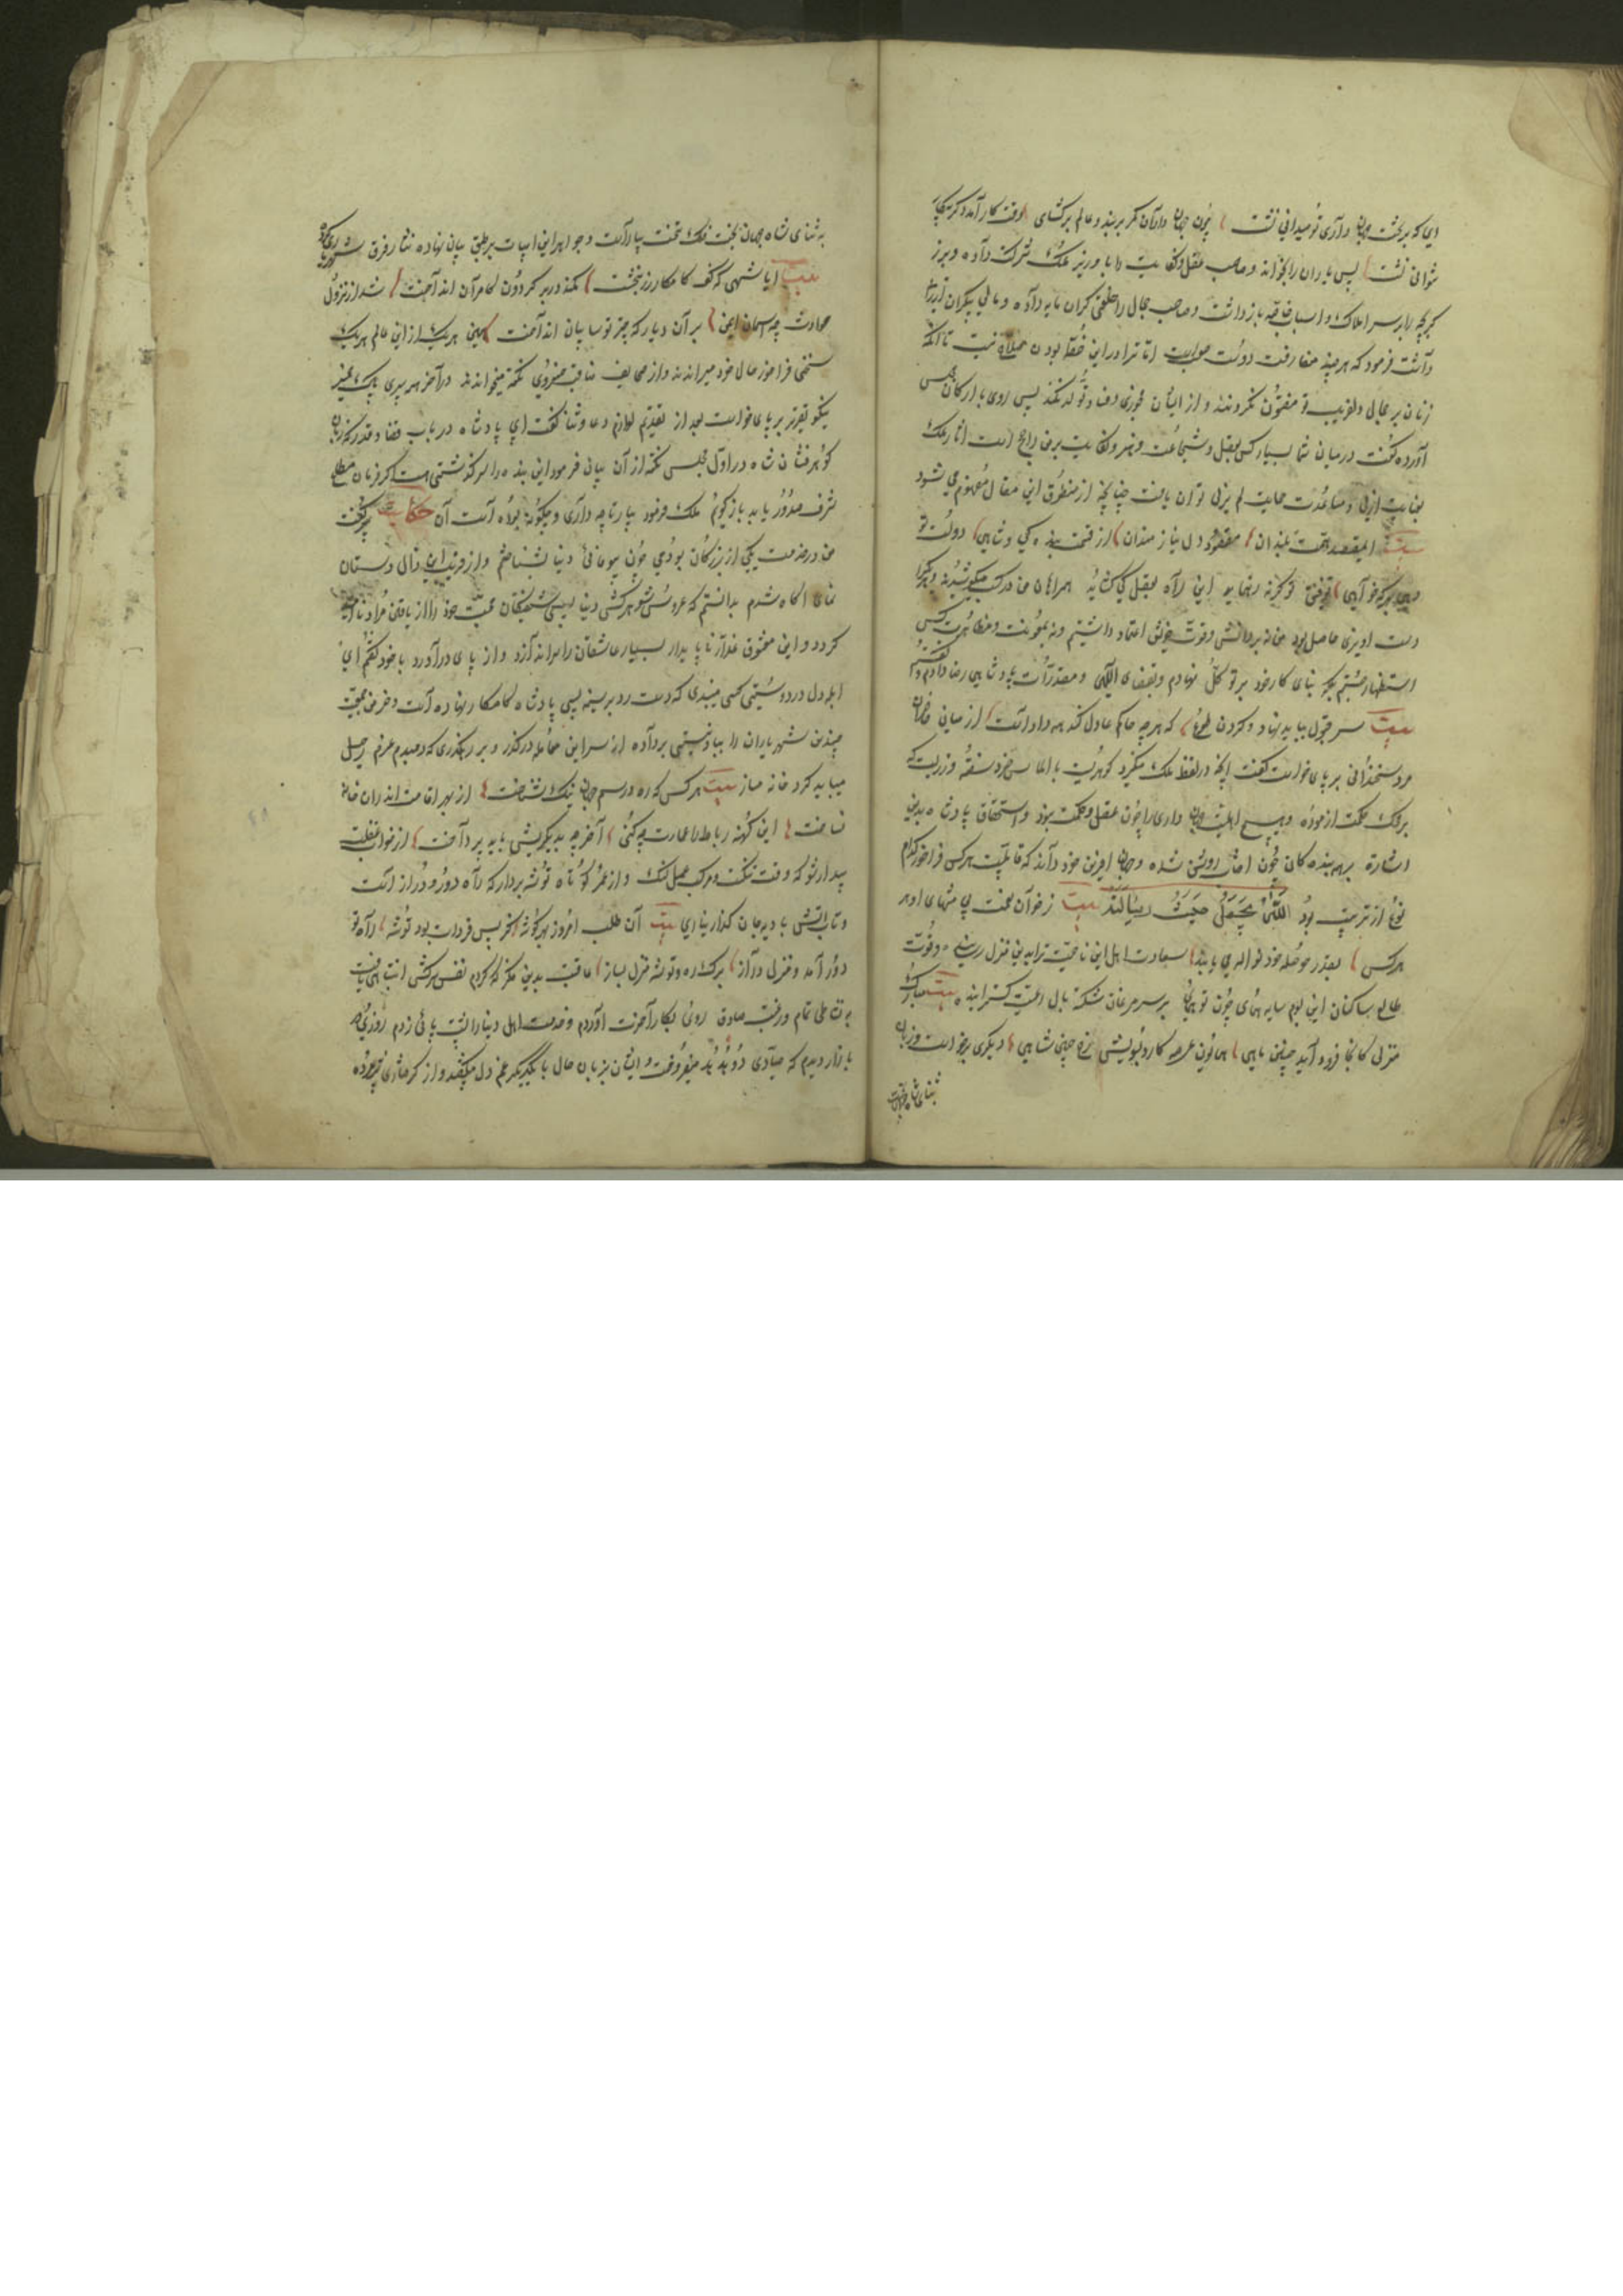 ای که بر تخت جهان داری تو میدانی نشست چون جهان داران کمر بربند و عالم برگشای وقت کار آمد دگر بیکار
نتوانی نشست پس یاران را بخواند و صاحب عقل و کفایت را با وزیر ملک شرکت داده و برزگر
بچه را بر سر املاک و اسباب خاصه باز داشت و صاحب جمال را خلعتی گران مایه داده و مالی بیکران ارزانی
داشت فرمود که هر چند مفارقت دولت صوابست اما ترا در این خطه بودن صلاح نیست تا آنکه
زنان بر جمال دلفریب تو مفتون نگردند و از ایشان فجوری و فساد تولد نکند پس روی با ارکان مجلس
آورده گفت درمیان شما بسیار کس بعقل و شجاعت و هنر و کفایت بر من راجح است اما ملک
بعنایت ازلی و مساعدت حمایت لم یزلی توان یافت چنانچه از منطوق این مقال مفهوم می شود
بیت ای مقصد همت بلندان مقصود دل نیازمندان از قسمت بندگی و شاهی دولت تو
دهی بهر که خواهی توفیق تو گر نه ره نماید این راه بعقل کی گشاید همراهان من در کسب میکوشیدند و هر یک را
دست اویزی حاصل بود من نه بر دانش و قوت خویش اعتماد داشتم و نه بمعونت و مظاهرت کس
استظهار جستم بلکه بنای کار خود بر توکل نهادم و بقضای الهی و مقدرات پادشاهی رضا دادم و گفتم
بیت سر قبول بباید نهاد و گردن طوع که هر چه حاکم عادل کند همه داد است از میان حاضران
مرد سخندانی بر پای خواست گفت انچه در لفظ ملک میگرد گوهریست بالماس خرد سفته و زریست که
بر محک حکمت ازموده و هیچ اهلیت جهان داری را چون عقل و حکمت نبود و استحقاق پادشاه بدین
اشارة بر همه بندگان چون آفتاب روشن شده و جهان افرین خود داند که قابلیت هر کس فراخور کدام
نوع از تربیت بود الله یجعل حیث رسالته بیت زخوان نعمت بی منتهای او هر
هرکس بقدر حوصله خود نواله می یابند سعادت اهل این ناحیت ترا بدین منزل رسانید و قوت
طالع ساکنان این بوم سایه همای چون تو همایی بر سر مرغان شکسته بال رعیت گسترانید بیت مبارک
منزلی کانجا فرود آید چنین ماهی همایون عرصه کارد بسویش رخ چنین شاهی دیگری برخواست و زبان
بثنای شاه
به ثنای شاه جهان بخت فلک تخت بیاراست و جواهر این ابیات بر طبق بیان نهاده نثار فرق شهریار کرد
بیت ایا شهی که کف کامکار زر بخشت کمند در بر گردون کامران انداخت شد از نزول
حوادث چه اسمان ایمن بر آن دیار که چتر تو سایبان انداخت همچنین هریک از این عالم هر یک
سخنی فراخور حال خود میراندند و از صحایف مناقب خسروی نکته میخواندند درآخر همه پیری پاک تمیز
نیکو تقریر بر پای خواست بعد از تقدیم لوازم دعا و ثنا گفت ای پادشاه در باب قضا و قدر که زبان
گوهر فشان شاه در اول مجلس نکته از آن بیان فرمود این بنده را سرگذشتی هست اگر فرمان مطاع
شرف صدور یابد باز گویم ملک فرمود بیار تا چه داری و چگونه بوده است آن حکایت پیر گفت
من درخدمت یکی از بزرگان بودمی چون بیوفائی دنیا بشناختم و از فریب این زال دستان
نمای آگاه شدم بدانستم که عروس شوهر کش دنیا بسی شیفتگان محبت خود را از یافتن مراد ناامید
گرداند و این معشوق غدار ناپایدار بسیار عاشقان را سرانداز و از پای درآورد با خود گفتم ای
ابله دل در دوستی کسی میبندی که دست رد بر سینه بسی پادشاه کامکار نهاده است و خرمن جمعیت
چندین شهریاران را بباد نیستی برداده از سر این معامله درگذر و بر رهگذری که دمبدم عزم رحیل
میباید کرد خانه مساز بیت هر کس که ره و رسم جهان نیک شناخت از بهر اقامت اندران خانه
نساخت این کهنه رباط را عمارت چه کنی آخر چه بدیگریش باید پرداخت از خواب غفلت
بیدار شو که وقت تنگ است و مرکب عمل لنگ و از عمر کوتاه توشه بردار که راه دور و دراز است
و تاب اتش بادیه جان گداز بیت آن طلب امروز بهر گوشه کز پس فردات بود توشه راه تو
دور آمد و منزل دراز برگ ره و توشه منزل بساز عاقبت بدین ذکر که کردم نفس سرکش انتباهی یافت
به نشاطی تمام و رغبت صادق روی بکار آخرت آوردم و خدمت اهل دنیا را پشت پائی زدم روزی در
بازار دیدم که صیادی دو هدهد میفروخت و ایشان بزبان حال با یکدیگر غم دل میگفتند و از گرفتاری خود